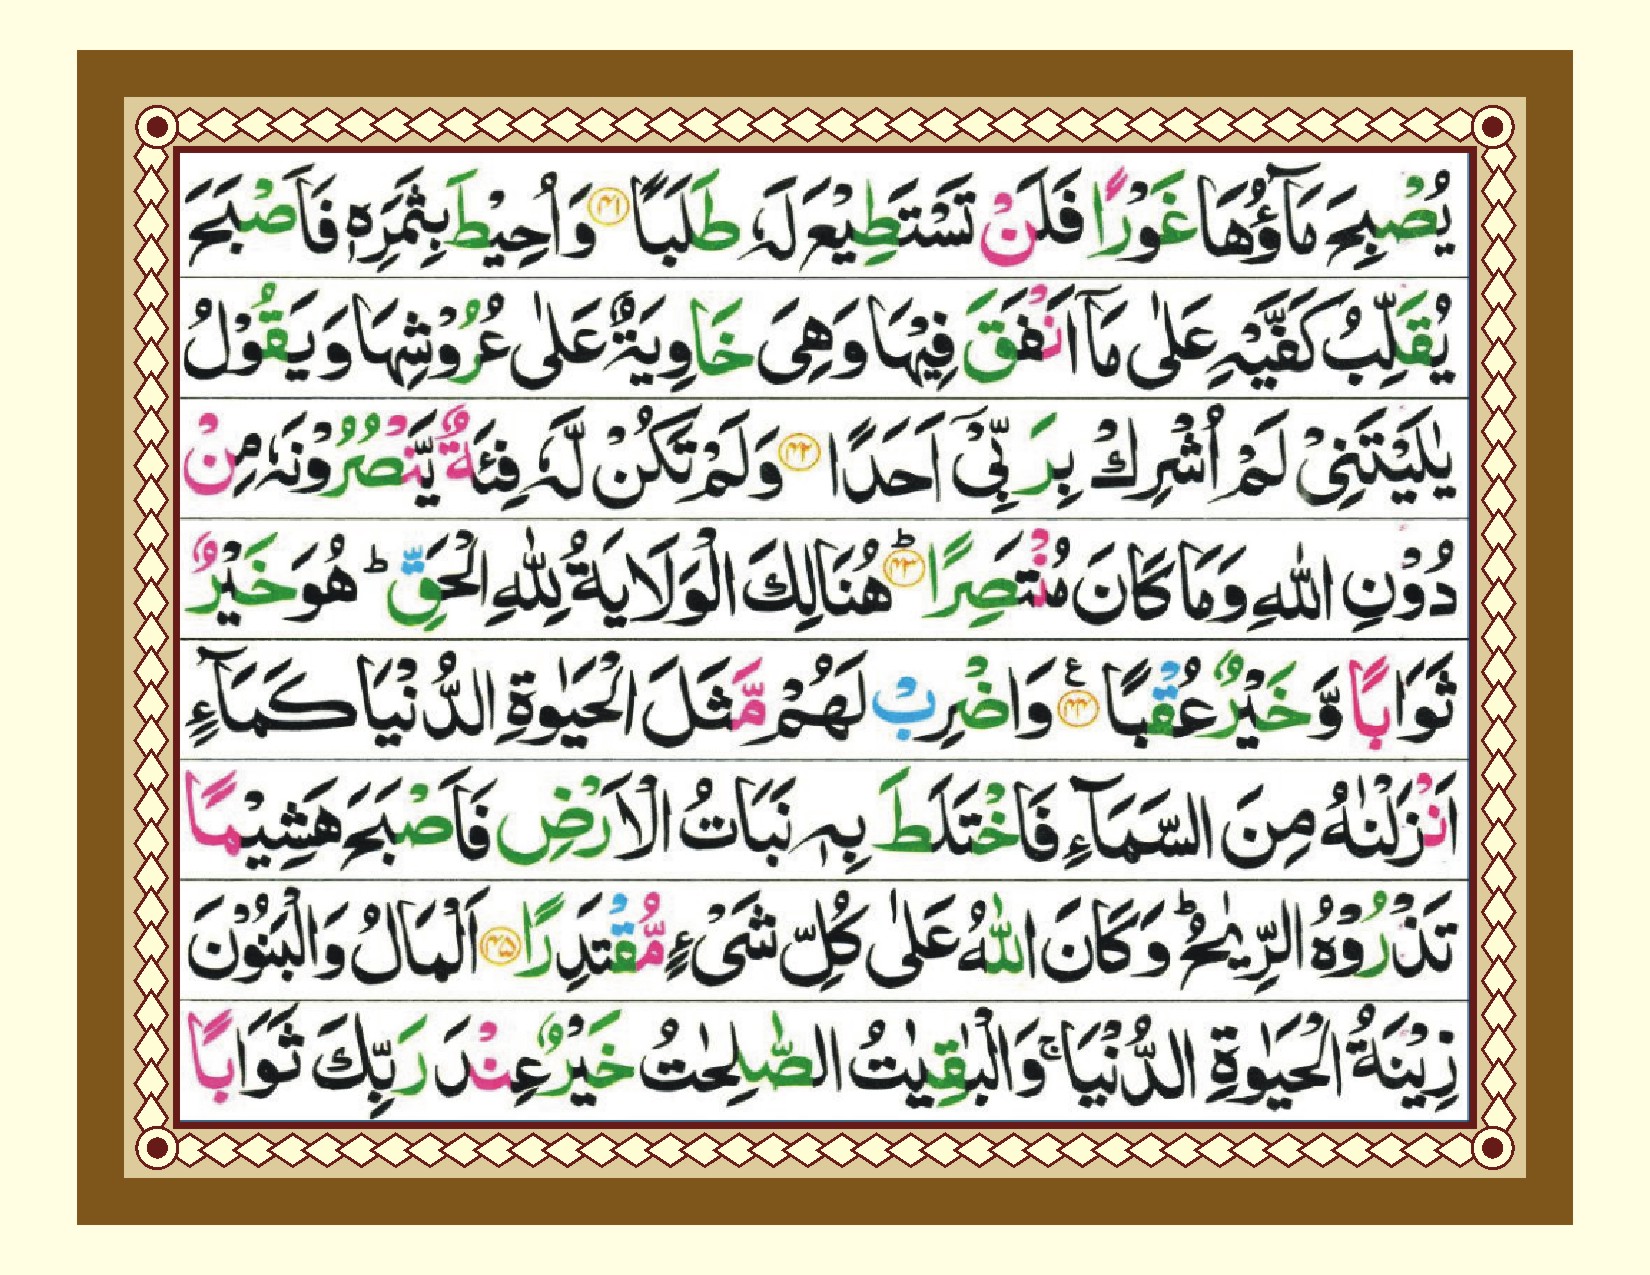 يُصْبِحَ مَآؤُهَا غَوْرًا فَلَنْ تَسْتَطِيْعَ لَهٗ طَلَبًا ﴿۴۱﴾ وَ اُحِيْطَ بِثَمَرِهٖ فَاَصْبَحَ
يُقَلِّبُ كَفَّيْهِ عَلٰى مَآ اَنْفَقَ فِيْهَا وَهِىَ خَاوِيَةٌ عَلٰى عُرُوْشِهَا وَ يَقُوْلُ
يٰلَيْتَنِىْ لَمْ اُشْرِكْ بِرَبِّىْٓ اَحَدًا ﴿۴۲﴾ وَلَمْ تَكُنْ لَّهٗ فِئَةٌ يَّنْصُرُوْنَهٗ مِنْ
دُوْنِ اللّٰهِ وَمَا كَانَ مُنْتَصِرًا ؕ﴿۴۳﴾ هُنَالِكَ الْوَلَايَةُ لِلّٰهِ الْحَقِّ ؕ هُوَ خَيْرٌ
ثَوَابًا وَّ خَيْرٌ عُقْبًا ﴿۴۴﴾ ع وَاضْرِبْ لَهُمْ مَّثَلَ الْحَيٰوةِ الدُّنْيَا كَمَآءٍ
اَنْزَلْنٰهُ مِنَ السَّمَآءِ فَاخْتَلَطَ بِهٖ نَبَاتُ الْاَرْضِ فَاَصْبَحَ هَشِيْمًا
تَذْرُوْهُ الرِّيٰحُ ؕ وَكَانَ اللّٰهُ عَلٰى كُلِّ شَىْءٍ مُّقْتَدِرًا ﴿۴۵﴾ اَلْمَالُ وَالْبَنُوْنَ
زِيْنَةُ الْحَيٰوةِ الدُّنْيَا ۚ وَالْبٰقِيٰتُ الصّٰلِحٰتُ خَيْرٌ عِنْدَ رَبِّكَ ثَوَابًا